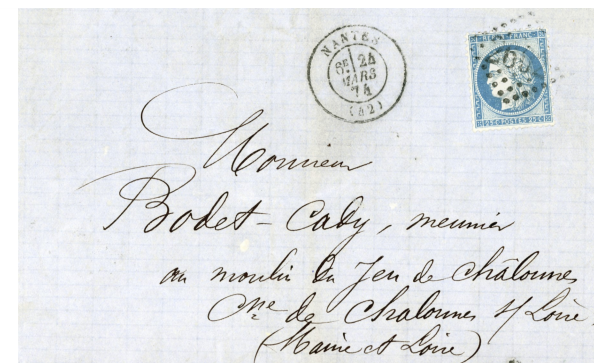 NANTES
6E 24
MARS
74
(42)
REPUB FRANC
25 C POSTES 25 C
Monsieur
Bodet - Cady, meunier
au moulin du Jeu de Châlonnes
Cne de Chalonnes s/ Loire
(Maine et Loire)